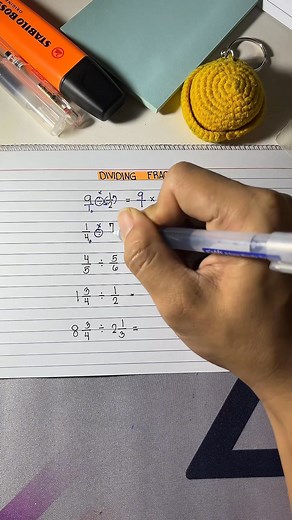 STABILO BOSS
DIVIDING FRAC
9/1 ÷ = 9/1 ×
1/4 ÷ 7
4/5 ÷ 5/6
1 3/4 ÷ 1/2 =
8 3/4 ÷ 2 1/3 =